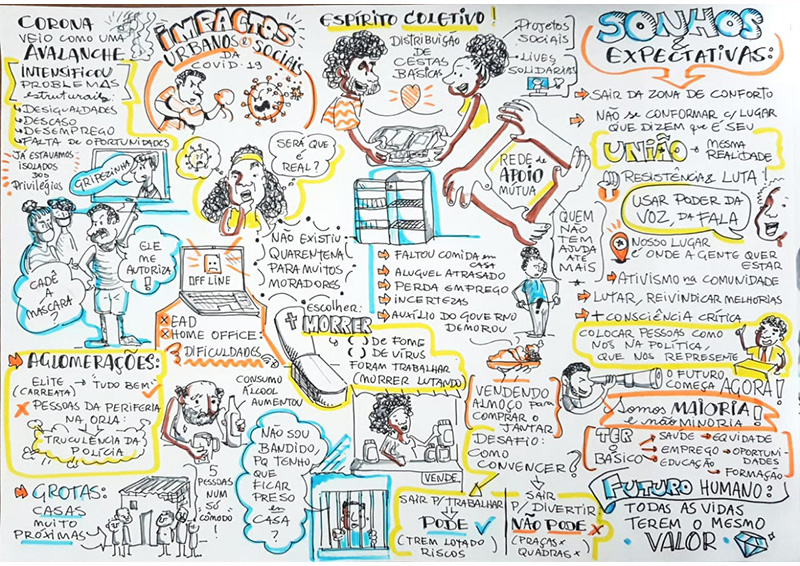 CORONA
VEIO COMO UMA
AVALANCHE
INTENSIFICOU
PROBLEMAS
estruturais
DESIGUALDADES
DESCASO
DESEMPREGO
FALTA DE OPORTUNIDADES
JÁ ESTÁVAMOS
ISOLADOS
DOS
Privilégios
GRIPEZINHA
CADÊ
A
MÁSCARA?
ELE
ME
AUTORIZA!
AGLOMERAÇÕES:
ELITE → "TUDO BEM"
(CARREATA)
X PESSOAS DA PERIFERIA
NA ORLA:
TRUCULÊNCIA DA
POLÍCIA
GROTAS:
CASAS
MUITO
PRÓXIMAS
5
PESSOAS
NUM
SÓ
CÔMODO!
IMPACTOS
URBANOS e SOCIAIS
DA
COVID-19
SERÁ QUE
é
REAL?
OFF LINE
X EAD
X HOME OFFICE:
DIFICULDADES
CONSUMO
ÁLCOOL
AUMENTOU
NÃO EXISTIU
QUARENTENA
PARA MUITOS
MORADORES
ESCOLHER:
MORRER
( ) DE FOME
( ) DE VÍRUS
FORAM TRABALHAR
(MORRER LUTANDO)
VENDE
NÃO SOU
BANDIDO,
PQ TENHO
QUE
FICAR
PRESO
em
CASA?
ESPÍRITO COLETIVO!
DISTRIBUIÇÃO
DE
CESTAS
BÁSICAS
PROJETOS
SOCIAIS
LIVES
SOLIDÁRIAS
REDE de
APOIO
MÚTUA
QUEM
NÃO
TEM
AJUDA
ATÉ
MAIS
FALTOU COMIDA em
CASA
ALUGUEL ATRASADO
PERDA EMPREGO
INCERTEZAS
AUXÍLIO DO GOVERNO
DEMOROU
VENDENDO
ALMOÇO para
COMPRAR O
JANTAR
DESAFIO:
COMO
CONVENCER?
SAIR P/ TRABALHAR
PODE
(TREM LOTADO)
RISCOS
SAIR
P/ DIVERTIR:
NÃO PODE X
(PRAÇAS X
QUADRAS X)
SONHOS
&
EXPECTATIVAS:
SAIR DA ZONA DE CONFORTO
NÃO SE CONFORMAR C/ LUGAR
QUE DIZEM que É SEU
UNIÃO → MESMA
REALIDADE
RESISTÊNCIA & LUTA!
USAR PODER DA
VOZ, DA FALA
NOSSO LUGAR
é ONDE A GENTE QUER
ESTAR
ATIVISMO NA COMUNIDADE
LUTAR, REIVINDICAR MELHORIAS
+ CONSCIÊNCIA CRÍTICA
COLOCAR PESSOAS COMO
NÓS NA POLÍTICA,
QUE NOS REPRESENTE
O FUTURO
COMEÇA AGORA!
Somos MAIORIA
e não MINORIA!
TER
o
BÁSICO
SAÚDE → EQUIDADE
EMPREGO → OPORTUNIDADES
EDUCAÇÃO
FORMAÇÃO
FUTURO HUMANO:
TODAS AS VIDAS
TEREM O MESMO
VALOR